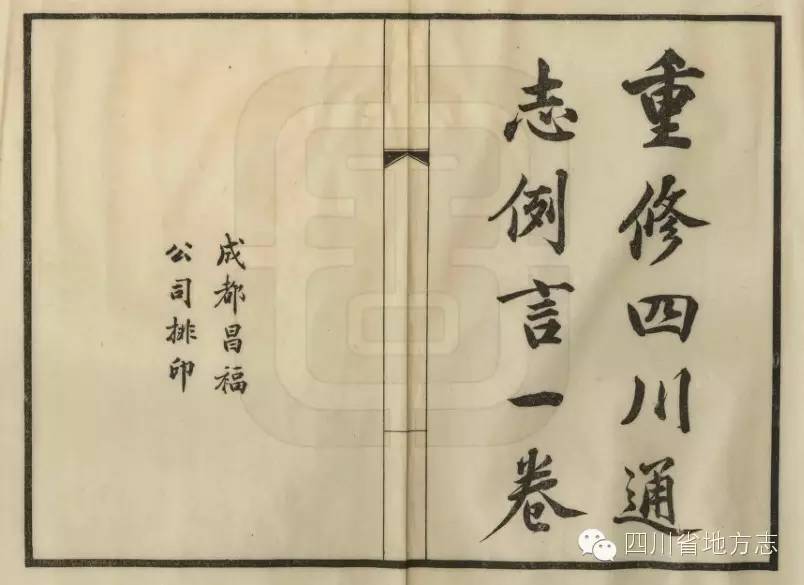 重修四川通
志例言一卷
成都昌福
公司排印
四川省地方志